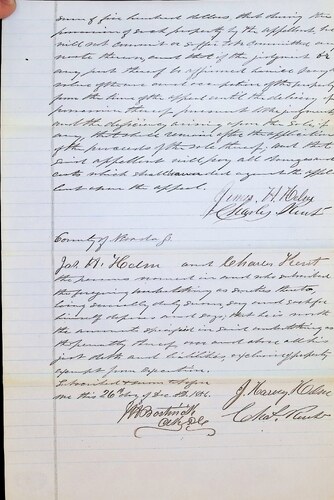 sum of five hundred dollars, that during the
possession of such property by the appellant, he
will not commit or suffer to be committed any
waste thereon, and that if the judgment or
any part thereof be affirmed he will pay
value of the use and occupation of the property
from the time of the appeal until the delivery of
possession thereof pursuant to the judgment
and the deficiency arising upon the sale if
any that shall remain after the application
of the proceeds of the sale thereof, and that
said appellant will pay all damages and
costs which shall be awarded against the appel
lant upon the appeal.
James H. Helm
Charles Kent
County of Nevada ss
Jas. H. Helm and Charles Kent
the persons named in and who subscribed
the foregoing undertaking as sureties thereto,
being severally duly sworn, say each for
himself deposes and says, that he is worth
the amount specified in said undertaking as
the penalty thereof over and above all his
just debts and liabilities exclusive of property
exempt from execution.
Subscribed & sworn to before
me this 26th day of Dec. A.D. 1876.
J. Harvey Helm
Chas. Kent